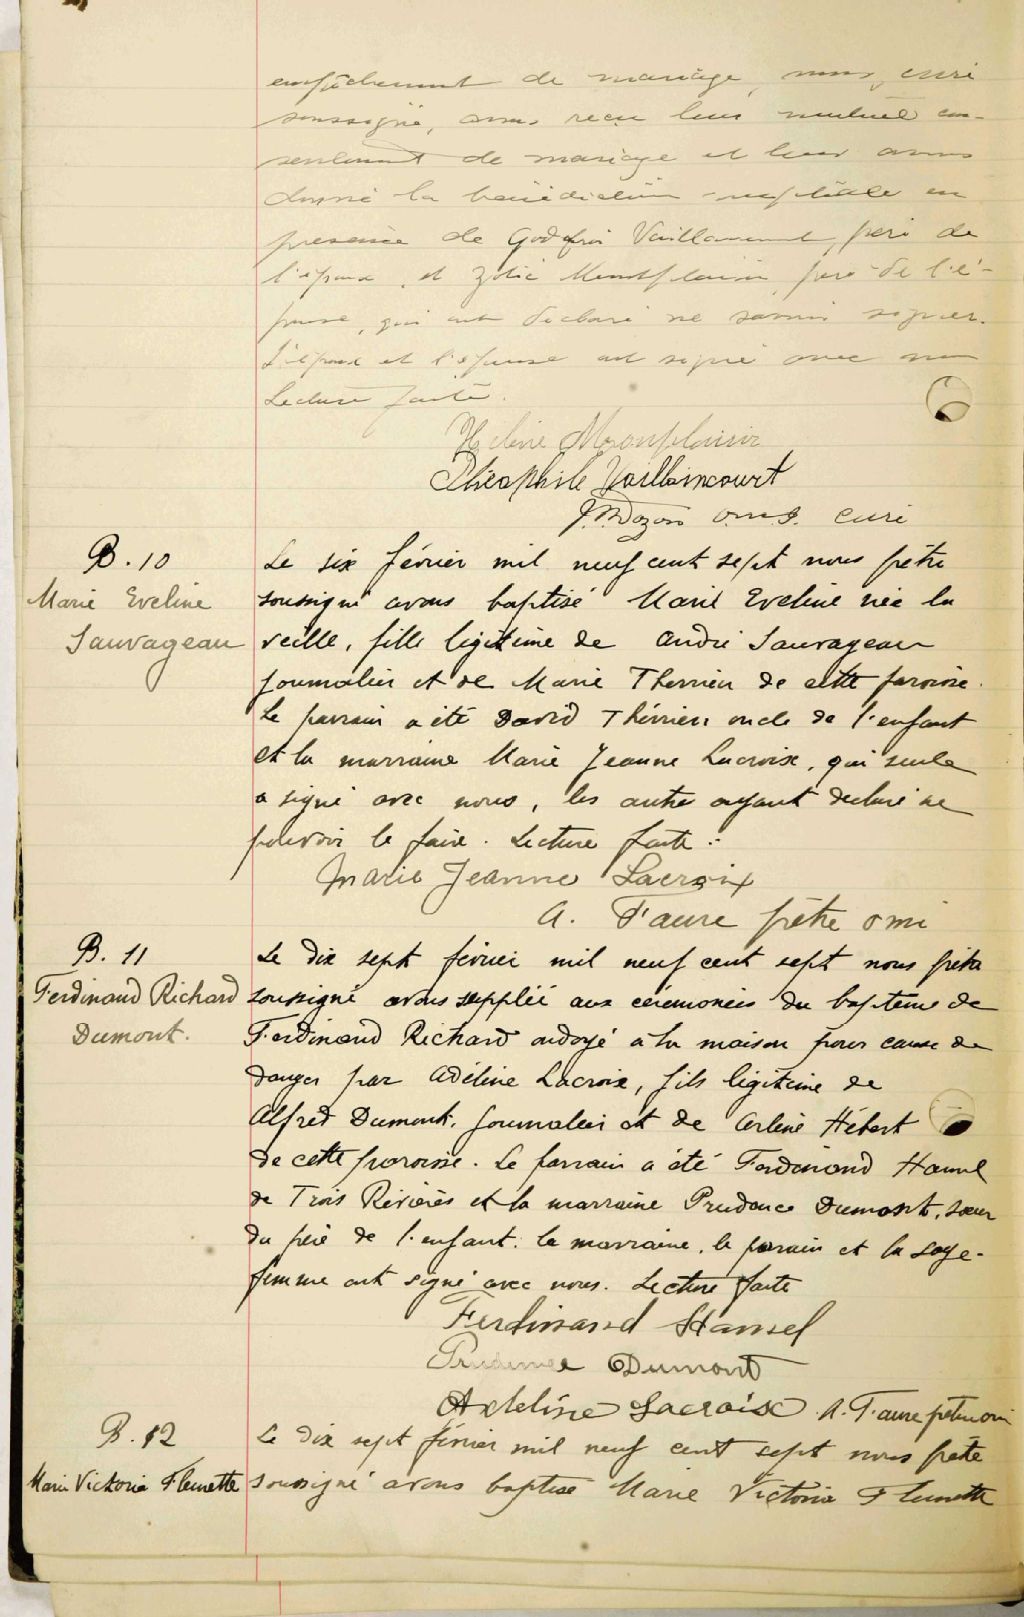 empêchement de mariage, nous, curé
soussigné, avons reçu leur mutuel con-
sentement de mariage et leur avons
donné la bénédiction nuptiale en
présence de Godfroi Vaillancourt, père de
l'époux, et Zotic Montplaisir, père de l'é-
pouse, qui ont déclaré ne savoir signer.
L'époux et l'épouse ont signé avec nous
Lecture faite.
Héline Monplaisir
Théophile Vaillancourt
o.m.I. curé
B. 10
Marie Eveline
Sauvageau
Le six février mil neuf cent sept nous prêtre
soussigné avons baptisé Marie Eveline née la
veille, fille légitime de André Sauvageau
journalier et de Marie Therrien de cette paroisse.
Le parrain a été David Thérrien oncle de l'enfant
et la marraine Marie Jeanne Lacroix, qui seule
a signé avec nous, les autre ayant declaré ne
pouvoir le faire. Lecture faite :
Marie Jeanne Lacroix
A. Faure prêtre omi
B. 11
Ferdinand Richard
Dumont.
Le dix sept février mil neuf cent sept nous prêtre
soussigné avons supplée aux cérémonies du bapteme de
Ferdinand Richard ondoyé à la maison pour cause de
danger par Adéline Lacroix, fils légitime de
Alfred Dumont, journalier et de Arlène Hébert
de cette paroisse. Le parrain a été Ferdinand Hamel
de Trois Rivières et la marraine Prudence Dumont, sœur
du père de l'enfant. la marraine, le parain et la sage-
femme ont signé avec nous. Lecture faite
Ferdinand Hamel
Prudence Dumont
Adeline Lacroix A. Faure prêtre omi
B. 12
Marie Victoria Fleurette
Le dix sept février mil neuf cent sept nous prêtre
soussigné avons baptisé Marie Victoria Fleurette